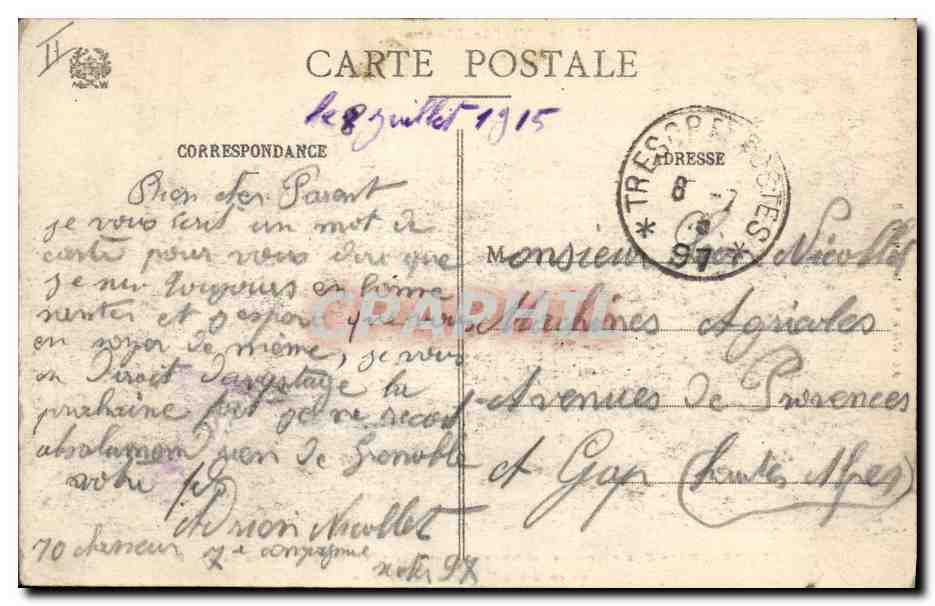 II
CARTE POSTALE
le 8 juillet 1915
CORRESPONDANCE
ADRESSE
TRESOR ET POSTES
8 -7
97
Bien cher Parent
je vous écrit un mot de
carte pour vous dire que
je suis toujours en bonne
sentez et j'espere que vous
en soyez de même, je vous
en diroit davantage la
prochaine fois je ne recoit
absolument rien de Grenoble
votre fils
Adrien Nicollet
70 chasseur 7e compagnie
secter 97
Monsieur Nicollet
Machines Agricoles
Avenues de Provences
A Gap (Hautes Alpes)
CPAPHIL